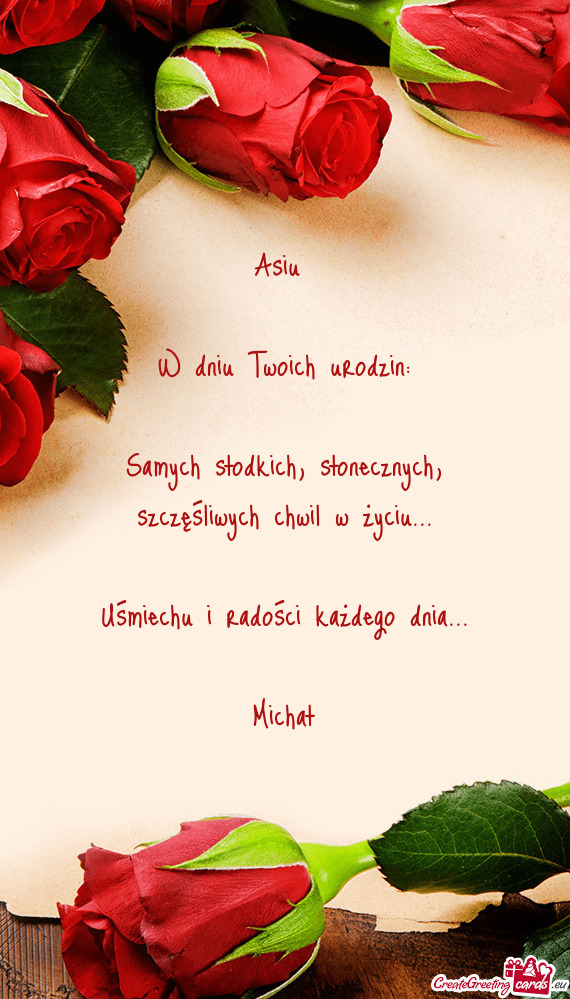 Asiu
W dniu Twoich urodzin:
Samych słodkich, słonecznych,
szczęśliwych chwil w życiu...
Uśmiechu i radości każdego dnia...
Michał
CreateGreeting cards .eu